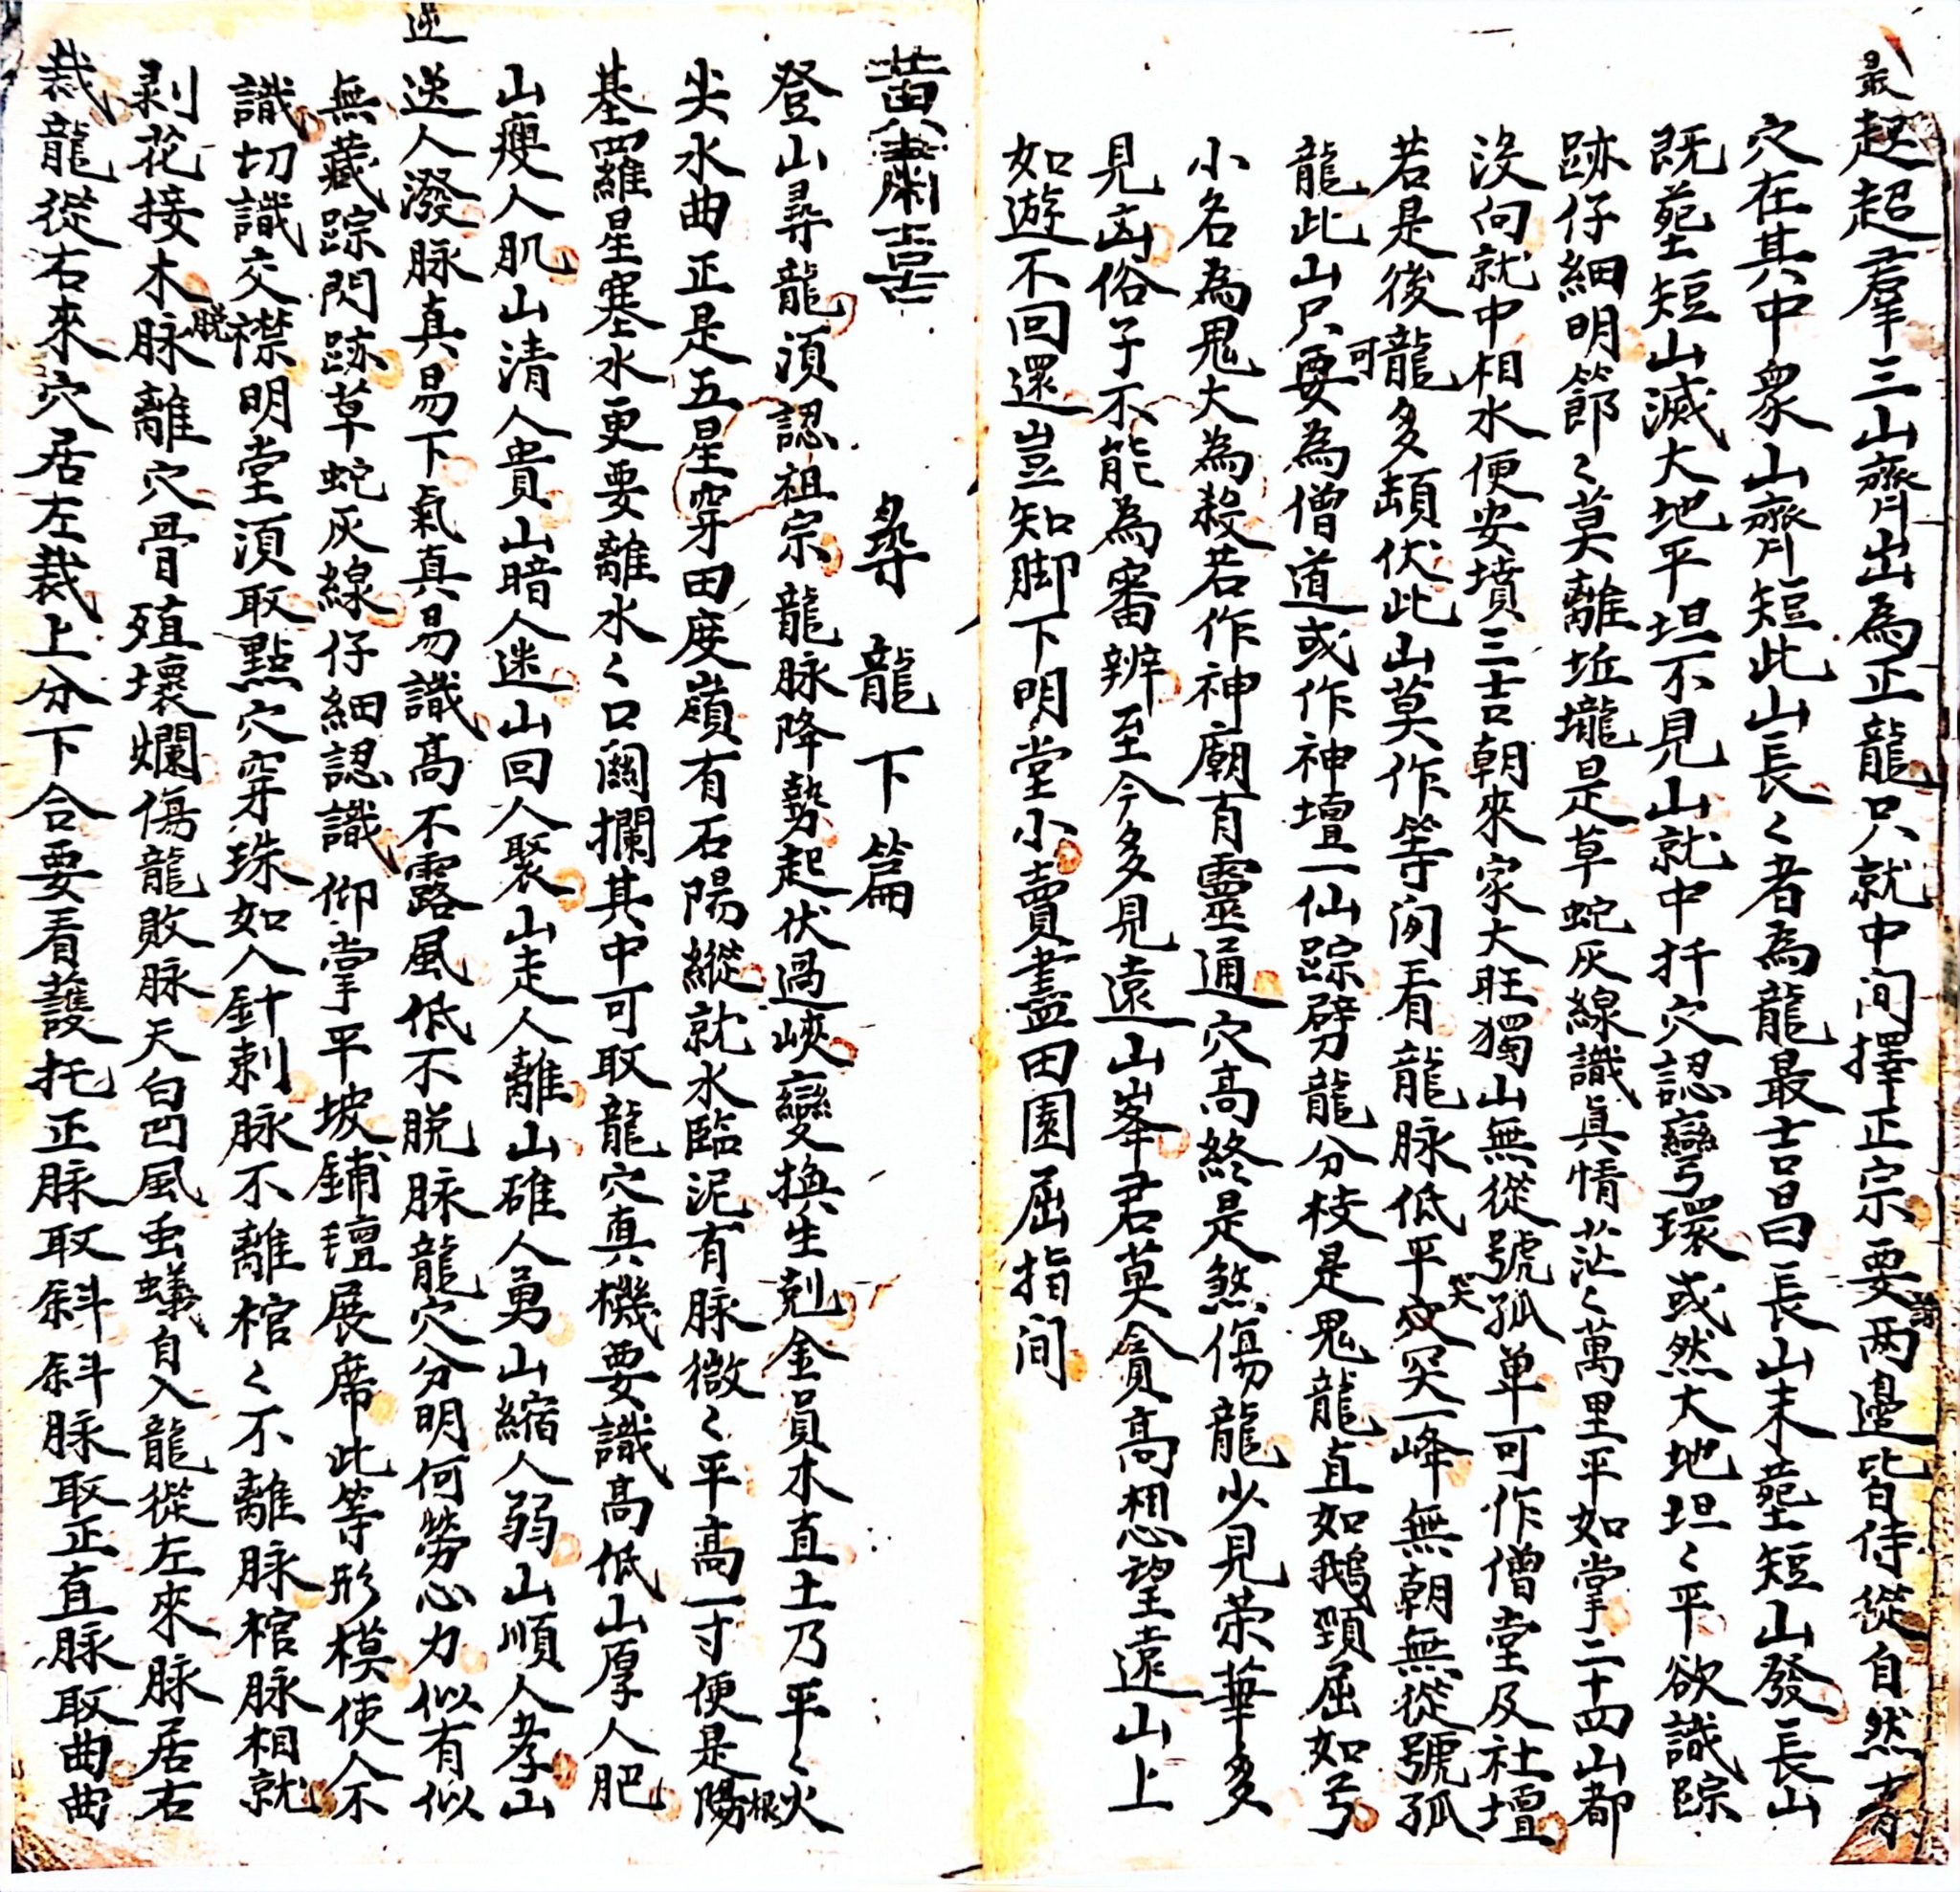 最起超羣三山齊出為正龍只就中间擇正宗要两邊皆侍從自然有
穴在其中衆山齊短此山長〻者為龍最吉昌長山末塟短山發長山
既塟短山滅大地平坦不見山就中扦穴認彎環或然大地坦〻平欲識踪
跡仔細明節〻莫離坵壠是草蛇灰線識真情茫〻萬里平如掌二十四山都
没向就中相水便安墳三吉朝來家大旺獨山無從號孤单可作僧堂及社壇
若是後龍多頡伏此山莫作等闲看龍脉低平突一峰無朝無從號孤
可
龍此山只要為僧道或作神壇一仙踪劈龍分枝是鬼龍直如鵝頸屈如弓
小名為鬼大為殺若作神廟有靈通穴高終是煞傷龍少見荣華多
見凶俗子不能為審辨至今多見遠山峯君莫貪高想望遠山上
如遊不回還豈知脚下明堂小賣盡田園屈指间
黄肅喜 尋龍下篇
登山尋龍須認祖宗龍脉降勢起伏過峽變換生剋金員木直土乃平〻火
尖水曲正是五星穿田度嶺有石陽縱就水臨泥有脉微〻平高一寸便是陽
根
基羅星塞水更要離水〻口闗攔其中可取龍穴真機要識高低山厚人肥
山瘦人肌山清人貴山暗人迷山回人聚山走人離山碓人勇山縮人弱山順人孝山
逆
送人潑脉真易下氣真易識高不露風低不脱脉龍穴分明何勞心力似有似
無藏踪閃跡草蛇灰線仔細認識仰掌平坡鋪氊展席此等形模使人不
識切識交襟明堂須取點穴穿珠如人針刺脉不離棺〻不離脉棺脉相就
脱
剥花接木脉離穴骨殖壞爛傷龍敗脉天白凹風虫蟻自入龍從左來脉居右
裁龍從右來穴居左裁上分下合要看護托正脉取斜斜脉取正直脉取曲曲